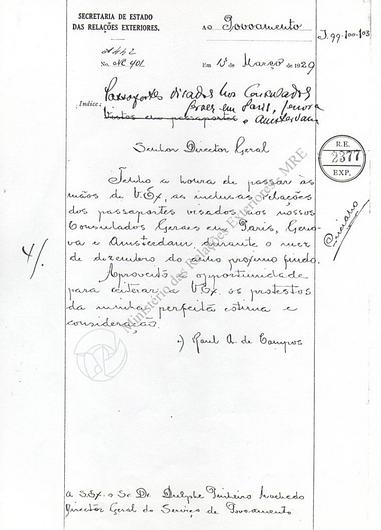 SECRETARIA DE ESTADO
DAS RELAÇÕES EXTERIORES.
Ao Povoamento
J.99-100-103
No. NC 401
Em 15 Março de 1929
Indice: Passaportes visados nos Consulados
Geraes em Paris, Genova
Vistos em passaportes e Amsterdam
Senhor Director Geral
R.E.
2377
EXP.
Tenho a honra de passar ás
mãos de V.Ex. as inclusas relações
dos passaportes visados nos nossos
Consulados Geraes em Paris, Geno-
va e Amsterdam durante o mez
de dezembro do anno proximo findo.
Aproveito a opportunidade
para reiterar a V.Ex. os protestos
da minha perfeita estima e
consideração.
a) Raul A. de Campos
Ministério das Relações Exteriores - MRE
A S.Ex. o Sr. Dr. Dulphe Pinheiro Machado
Director Geral do Serviço de Povoamento